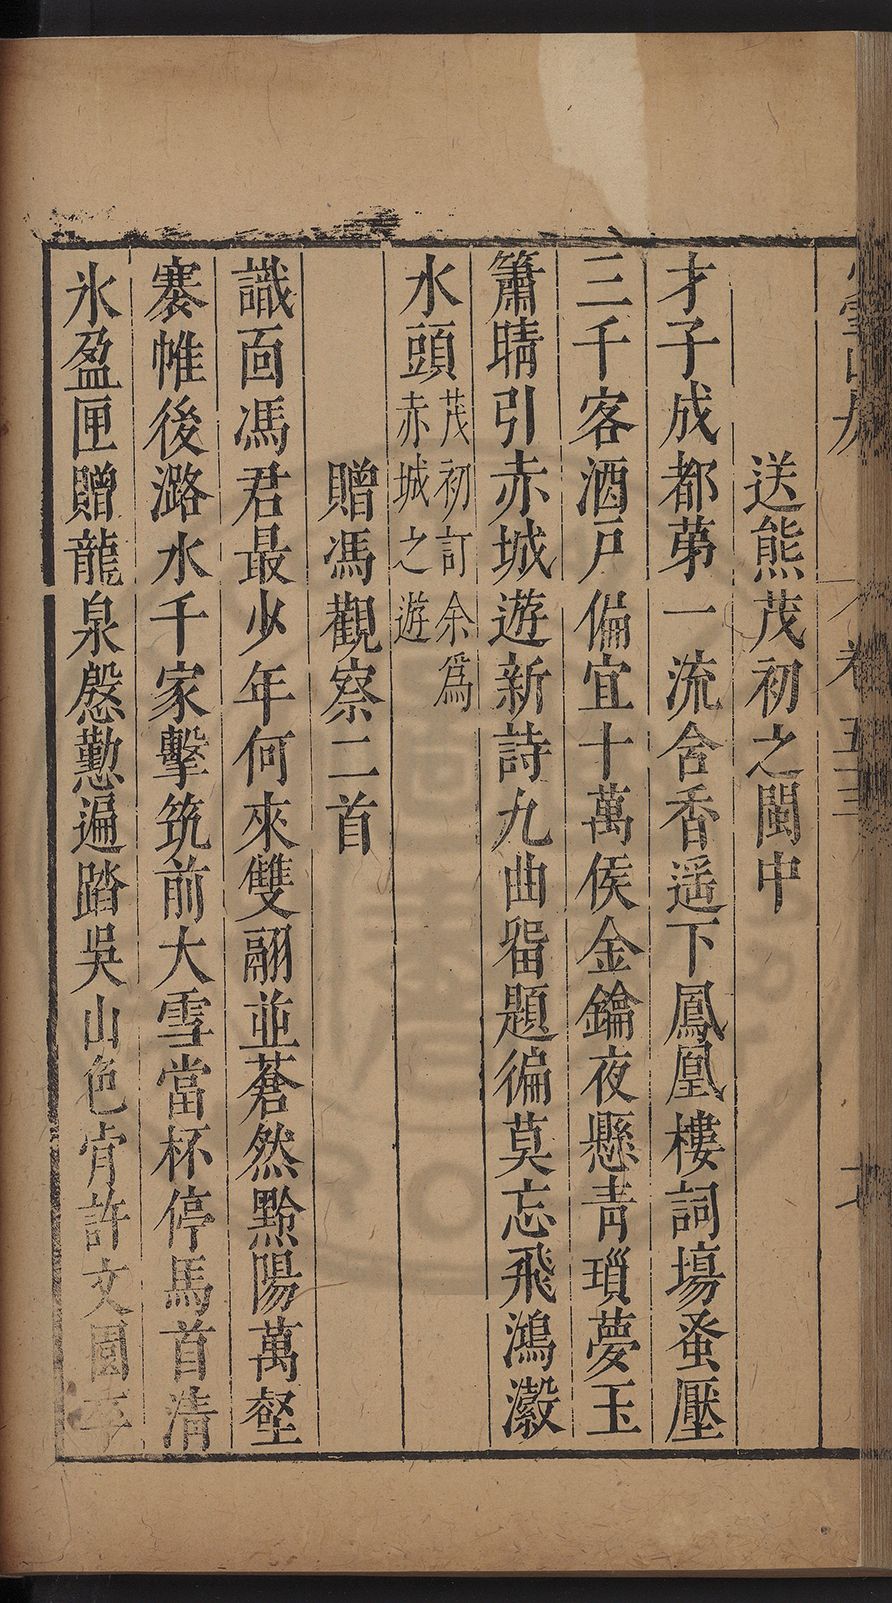 卷五十三
送熊茂初之閩中
才子成都第一流含香遥下鳳凰樓詞塲蚤壓
三千客酒戸偏宜十萬侯金鑰夜懸靑瑣夢玉
簫晴引赤城遊新詩九曲畱題徧莫忘飛鴻瀫
水頭茂初訂余爲赤城之遊
贈馮觀察二首
識靣馮君最少年何來雙翮並蒼然黔陽萬壑
褰帷後潞水千家擊筑前大雪當杯停馬首淸
氷盈匣贈龍泉慇懃遍踏吳山色肯許文園